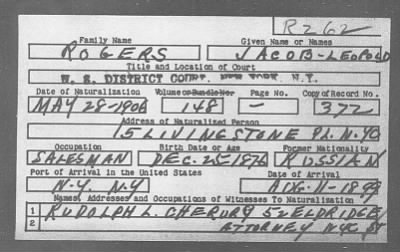 R262
Family Name Given Name or Names
ROGERS JACOB-LEOPOLD
Title and Location of Court
U. S. DISTRICT COURT, NEW YORK, N.Y.
Date of Naturalization Volume or Bundle No. Page No. Copy of Record No.
MAY 28-1906 148 - 372
Address of Naturalized Person
15 LIVINGSTONE PA. N.YC
Occupation Birth Date or Age Former Nationality
SALESMAN DEC. 25-1876 RUSSIAN
Port of Arrival in the United States Date of Arrival
N.Y. N.Y AUG. 11-1899
Names, Addresses and Occupations of Witnesses To Naturalization
1 RUDOLPH L. CHERURG 52 ELDRIDGE
2 ATTORNEY NYC ST